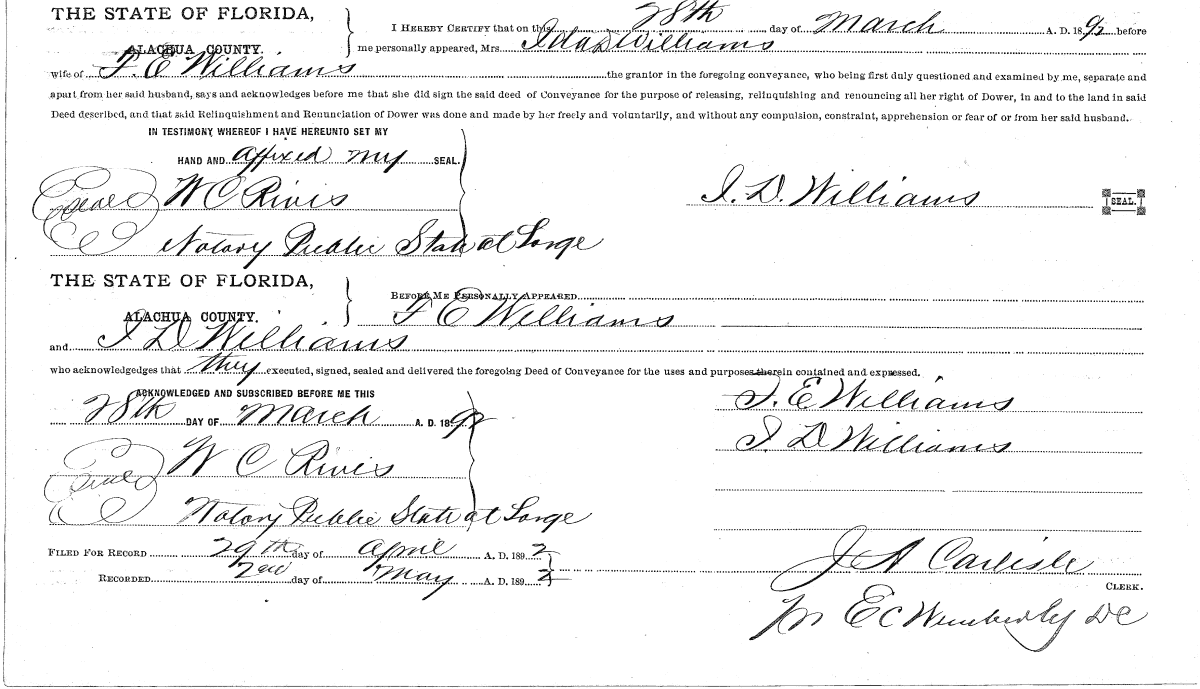 THE STATE OF FLORIDA,
ALACHUA COUNTY.
I HEREBY CERTIFY that on this 28th day of March A. D. 1892 before
me personally appeared, Mrs. Ida D Williams
wife of F. E Williams the grantor in the foregoing conveyance, who being first duly questioned and examined by me, separate and
apart from her said husband, says and acknowledges before me that she did sign the said deed of Conveyance for the purpose of releasing, relinquishing and renouncing all her right of Dower, in and to the land in said
Deed described, and that said Relinquishment and Renunciation of Dower was done and made by her freely and voluntarily, and without any compulsion, constraint, apprehension or fear of or from her said husband.
IN TESTIMONY WHEREOF I HAVE HEREUNTO SET MY
HAND AND affixed my SEAL.
Seal W C Rivis
I. D. Williams SEAL.
Notary Public State at Large
THE STATE OF FLORIDA,
ALACHUA COUNTY.
BEFORE ME PERSONALLY APPEARED
F E Williams
and I D Williams
who acknowledgedges that they executed, signed, sealed and delivered the foregoing Deed of Conveyance for the uses and purposes therein contained and expressed.
ACKNOWLEDGED AND SUBSCRIBED BEFORE ME THIS
28th DAY OF March A. D. 1892
F. E Williams
I. D Williams
Seal W C Rivis
Notary Public State at Large
FILED FOR RECORD 29th day of April A. D. 1892
RECORDED 2nd day of May A. D. 1892
J A Carlisle
CLERK.
Pr E C Wimberly DC